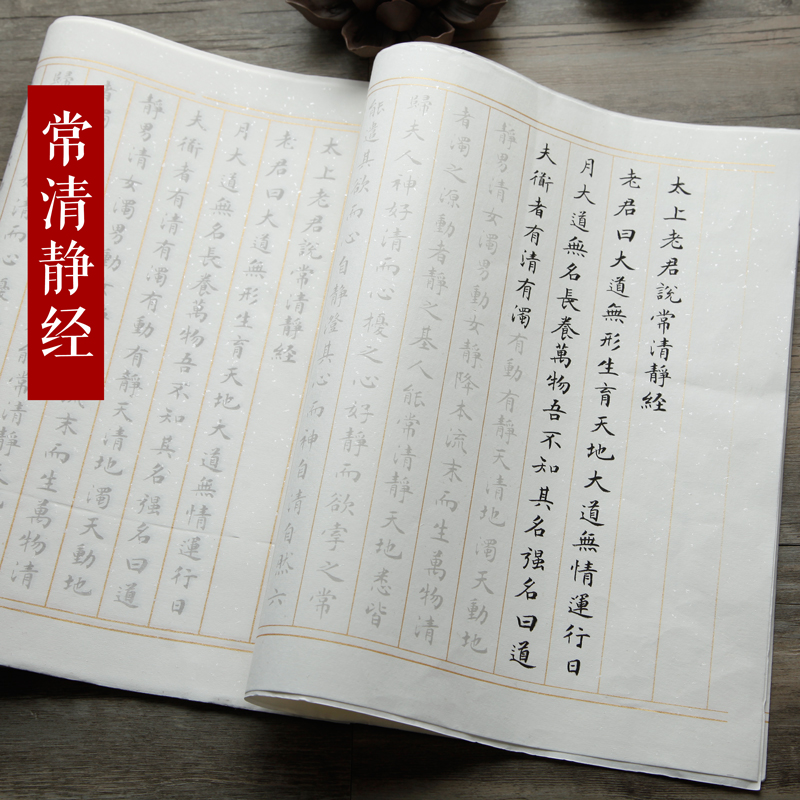 常清静经
太上老君說常清靜經
老君曰大道無形生育天地大道無情運行日
月大道無名長養萬物吾不知其名强名曰道
夫衜者有清有濁有動有靜天清地濁天動地
靜男清女濁男動女靜降本流末而生萬物清
者濁之源動者靜之基人能常清靜天地悉皆
歸夫人神好清而心擾之心好靜而欲牽之常
能遣其欲而心自靜澄其心而神自清自然六
太上老君說常清靜經
老君曰大道無形生育天地大道無情運行日
月大道無名長養萬物吾不知其名强名曰道
夫衜者有清有濁有動有靜天清地濁天動地
靜男清女濁男動女流末而生萬物清
者濁能常清靜天
歸而心擾